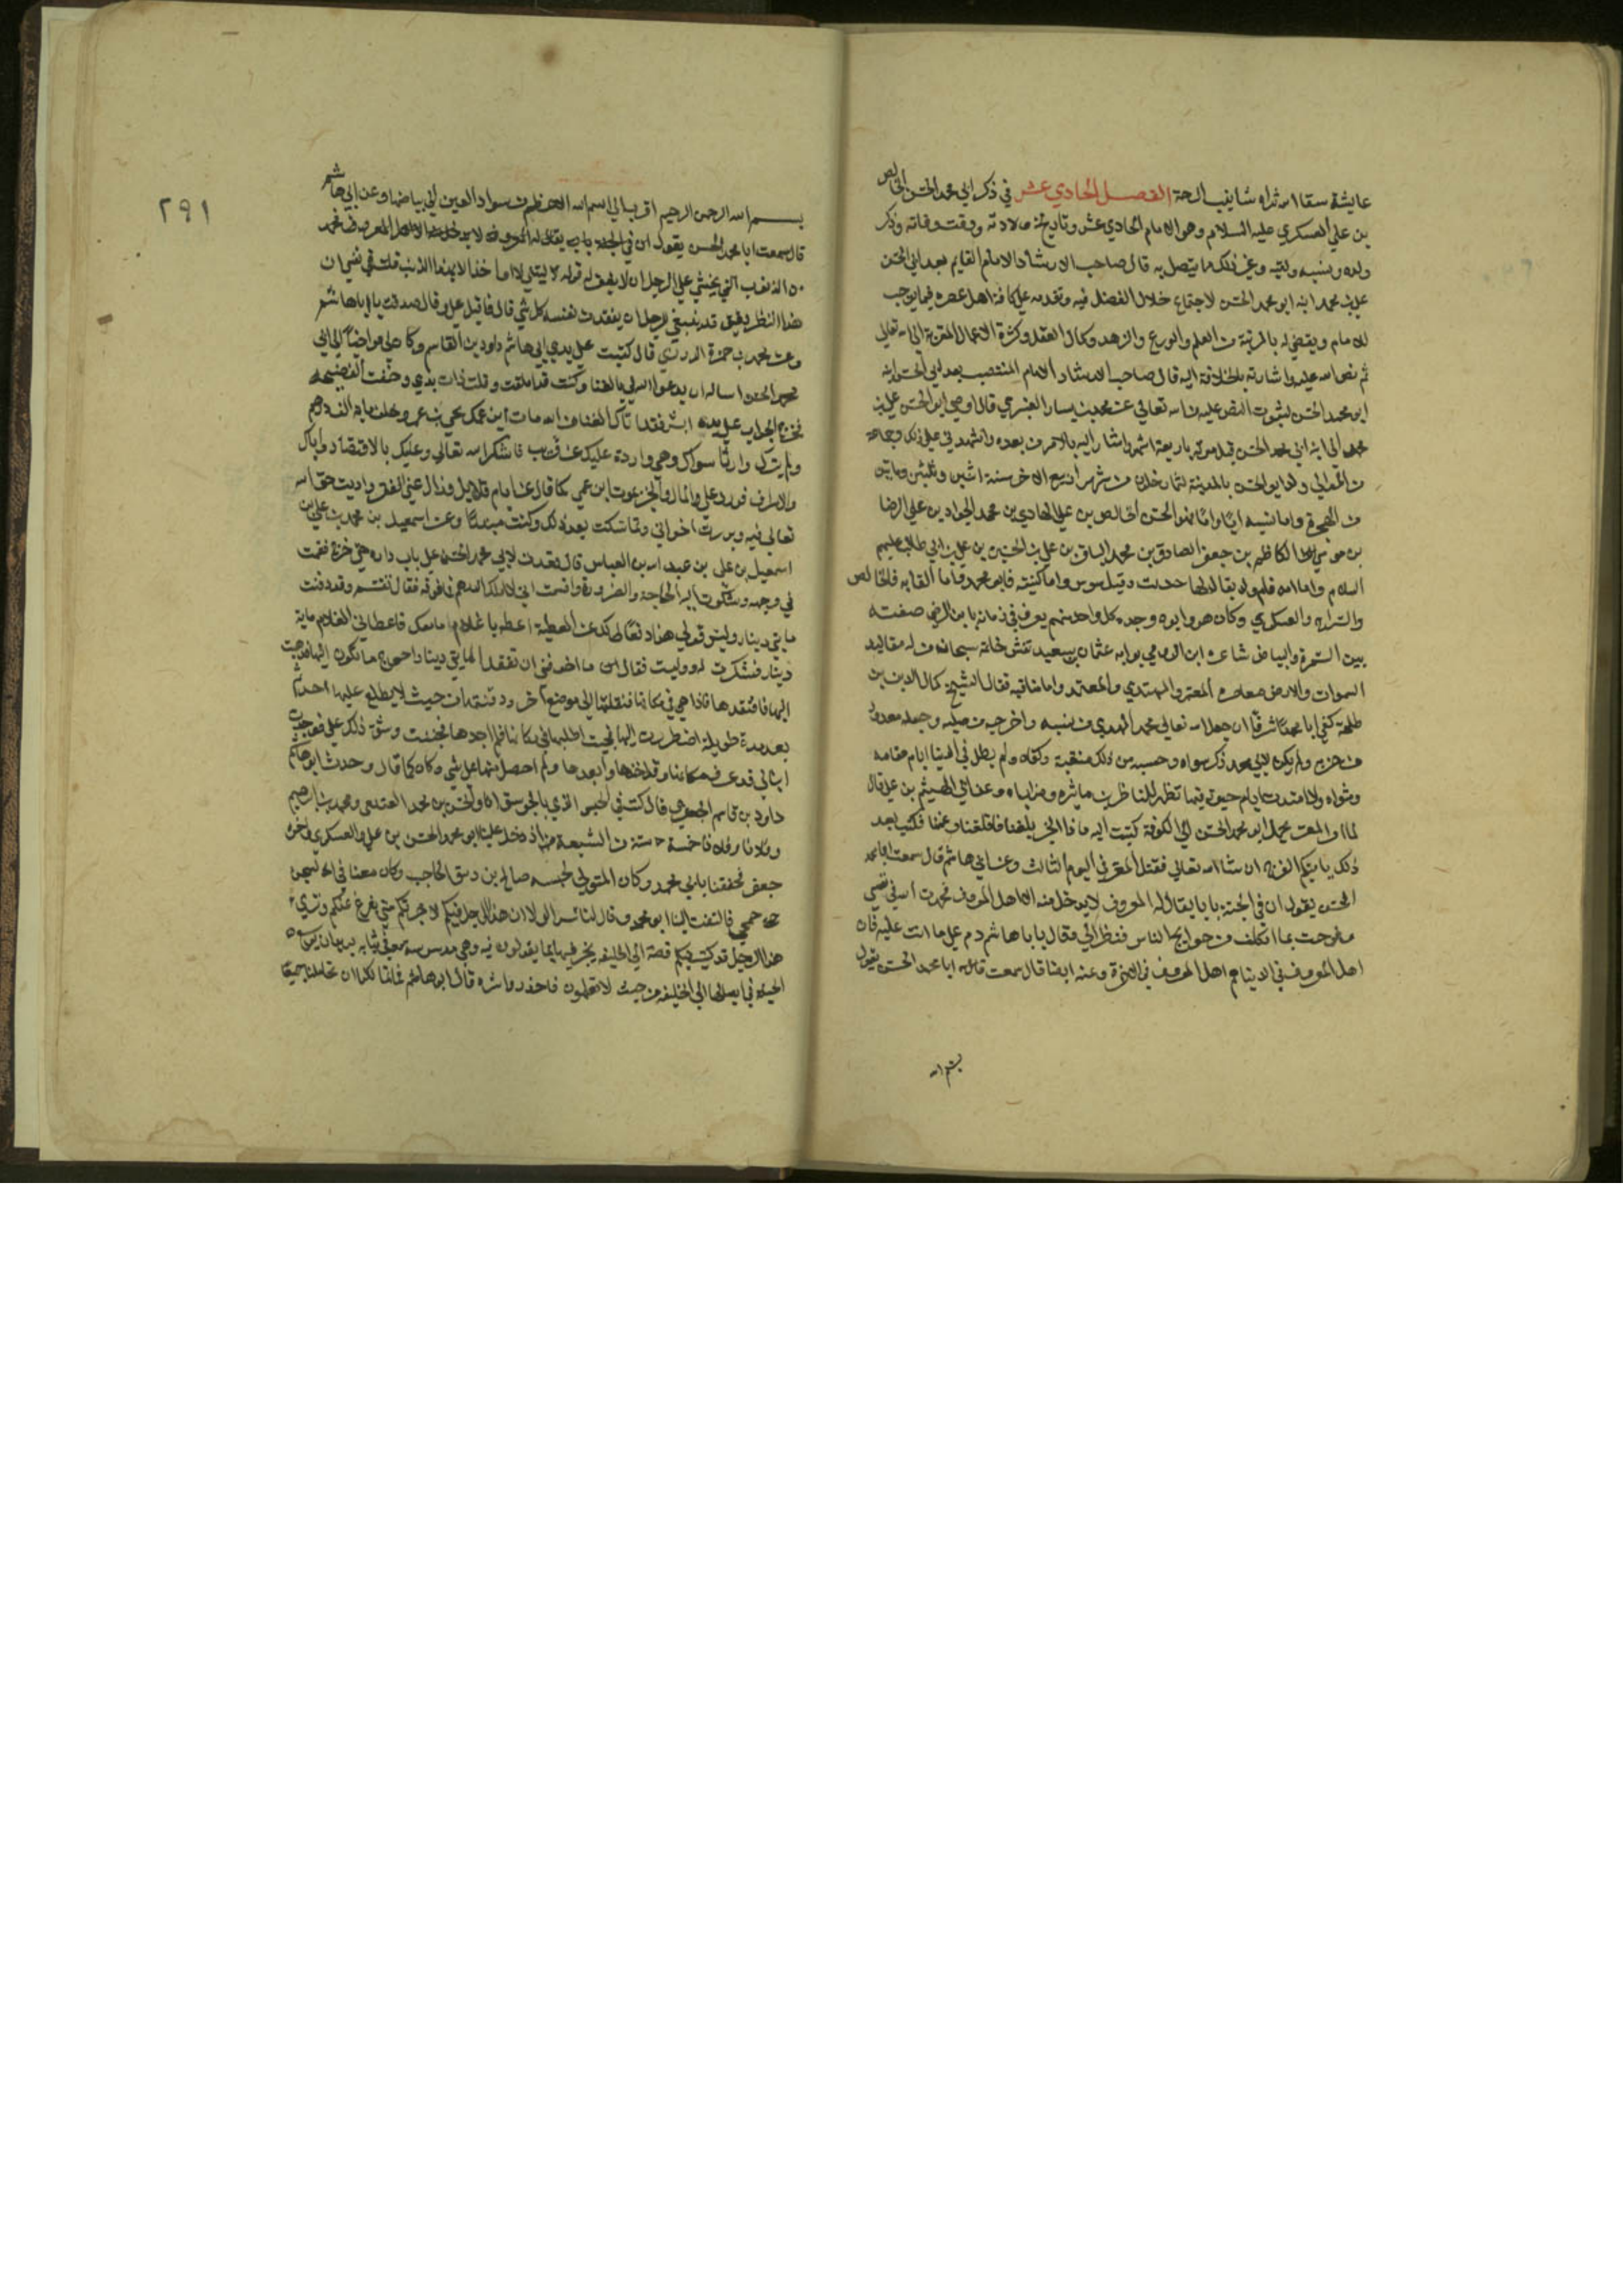 عايشة سقا الله ثراه شابيب الرحمة الفصل الحادي عشر في ذكر ابي محمد الحسن الخالص
بن علي العسكري عليه السلام وهو الامام الحادي عشر وتاريخ ولادته ووقت وفاته وذكر
ولده ونسبه وكنيته وغير ذلك مما يتصل به قال صاحب الارشاد الامام القايم بعد ابي الحسن
علي بن محمد ابنه ابو محمد الحسن لاجتماع خلال الفضل فيه وتقدمه على كافة اهل عصره فيما يوجب
له الامامة ويقضي له بالمرتبة من العلم والورع والزهد وكمال العقل وكثرة الاعمال المقربة الى الله تعالى
ثم نص ابيه عليه واشارته بالخلافة اليه قال صاحب الارشاد الامام المنتصب بعد ابي الحسن ابنه
ابو محمد الحسن لثبوت النص عليه من ابيه تعالى عن محمد بن يسار العنبري قال اوصى ابو الحسن علي بن
محمد الى ابنه ابي محمد الحسن قبل موته باربعة اشهر واشار اليه بالامر من بعده واشهدني على ذلك وجماعة
من الموالي ولد ابو الحسن بالمدينة لثمان خلون من شهر ربيع الاخر سنة اثنين وثلثين ومايتين
من الهجرة واما نسبه ابا واما فهو الحسن الخالص بن علي الهادي بن محمد الجواد بن علي الرضا
بن موسى الكاظم بن جعفر الصادق بن محمد الباقر بن علي بن الحسين بن علي بن ابي طالب عليهم
السلام واما امه فام ولد يقال لها حديث وقيل سوسن واما كنيته فابو محمد واما القابه فالخالص
والسراج والعسكري وكان هو وابوه وجده كل واحد منهم يعرف في زمانه بابن الرضي صفته
بين السمرة والبياض شاعره ابن الرومي بوابه عثمان بن سعيد نقش خاتمه سبحان من له مقاليد
السموات والارض معاصره المعتز والمهتدي والمعتمد واما مناقبه فقال الشيخ كمال الدين بن
طلحة كفى ابا محمد شرفا ان جعل الله تعالى محمد المهدي من نسبه واخرجه من صلبه وجعله معدودا
من حزبه ولم يكن لابي محمد ذكر سواه وحسبه من ذلك منقبة وكفاه ولم يطل في الدنيا ايام مقامه
ومثواه ولا امتدت ايام حيوته فيها لتظهر للناظرين ماثره ومزاياه وعن ابي الهيثم بن علي قال
لما امر المعتز بحمل ابي محمد الحسن الى الكوفة كتبت اليه ما هذا الخبر بلغنا فاقلقنا وغمنا فكتب بعد
ذلك ياتيكم الفرج ان شا الله تعالى فقتل المعتز في اليوم الثالث وعن ابي هاشم قال سمعت ابا محمد
الحسن يقول ان في الجنة بابا يقال له المعروف لا يدخل منه الا اهل المعروف فحمدت الله في نفسي
وفرحت بما اتكلف من حوايج الناس فنظر الي وقال يا ابا هاشم دم على ما انت عليه فان
اهل المعروف في الدنيا هم اهل المعروف في الاخرة وعنه ايضا قال سمعت ابا محمد الحسن يقول
بسم الله
٢٩١
بسم الله الرحمن الرحيم اقرب الى اسم الله الاعظم من سواد العين الى بياضها وعن ابي هاشم
قال سمعت ابا محمد الحسن يقول ان في الجنة باب يقال له المعروف لا يدخل منه الا اهل المعروف فحمد
الذنوب التي يخشى على الرجل ان لا يغفر له قوله ليتني لا اواخذ الا بهذا الذنب فقلت في نفسي ان
هذا النظر دقيق قد ينبغي للرجل ان يفقد من نفسه كل شي قال فاقبل علي وقال صدقت يا ابا هاشم
وعن محمد بن حمزة الدوري قال كتبت على يدي ابي هاشم داود بن القاسم وكان لي مواخيا الى ابي
محمد الحسن اساله ان يدعو الله لي بالغنا وكنت قد املقت وقلت ذات يدي وخفت الفضيحة
فخرج الجواب على يده ابشر فقد اتاك الغنا من الله مات ابن عمك يحيى بن حمزة وخلف ماية الف درهم
ولم يترك وارثا سواك وهي واردة عليك عن قريب فاشكر الله تعالى وعليك بالاقتصاد واياك
والاسراف فورد علي المال والخبر بموت ابن عمي كما قال عن ايام قلايل وزال عني الفقر واديت حق الله
تعالى فيه وبررت اخواني وتماسكت بعد ذلك وكنت مبذرا وعن اسمعيل بن محمد بن علي بن
اسمعيل بن علي بن عبد الله بن العباس قال قعدت لابي محمد الحسن على باب داره حتى خرج فقمت
في وجهه وشكوت اليه الحاجة والضرورة واقسمت اني لا املك الدرهم فما فوقه فقال تقسم وقد دفنت
مايتي دينار وليس قولي هذا دفعا لك عن العطية اعطه يا غلام ما معك فاعطاني الغلام ماية
دينار فشكرت له ووليت فقال ما اخوفني ان تفقد المايتي دينار احوج ما تكون اليها فذهبت
اليها فافتقدها فاذا هي في مكانها فنقلتها الى موضع اخر ودفنتها من حيث لا يطلع عليها احد ثم
بعد مدة طويلة اضطررت اليها فجيت اطلبها في مكانها فلم اجدها فجننت وشق ذلك علي فوجدت
ابنا لي قد عرف مكانها وقد اخذها وابعدها ولم احصل منها على شي وكان كما قال وحدث ابو هاشم
داود بن قاسم الجعفري قال كنت في الحبس الذي بالجوسق انا والحسن بن محمد العتيقي ومحمد بن ابراهيم
وفلان وفلان خمسة ستة من الشيعة اذ دخل علينا ابو محمد الحسن بن علي العسكري واخوه
جعفر فحففنا بابي محمد وكان المتولي لحبسه صالح بن وصيف الحاجب وكان معنا في السجن
رجل جمحي فالتفت الينا ابو محمد وقال لنا سرا لولا ان هذا الرجل فيكم لاخبرتكم متى يفرج عنكم وترى
هذا الرجل قد كتب فيكم قصة الى الخليفة يخبره فيها بما يقولون فيه وهي مدسوسة معه في ثيابه يريد ان يوسع
الحيلة في ايصالها الى الخليفة من حيث لا تعلمون فاحذروا شره قال ابو هاشم فما لبثنا كلنا ان تحاملنا جميعا